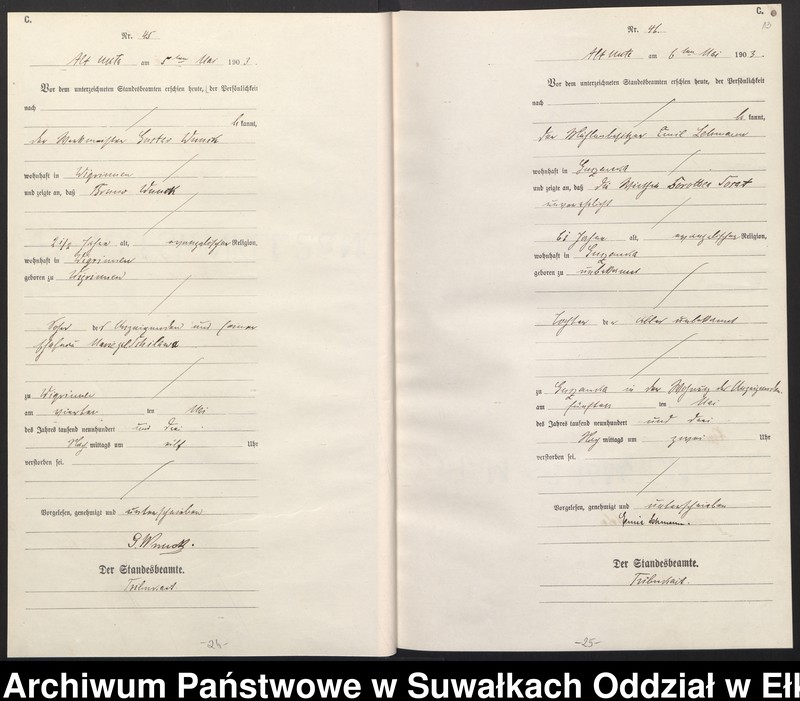 C.
Nr. 45
am 5ten Mai 1903.
Vor dem unterzeichneten Standesbeamten erschien heute, der Persönlichkeit
nach
be kannt,
der Werkmeister Gustav
wohnhaft in Wigrinnen
und zeigte an, daß Bruno
2 1/2 Jahre alt, evangelischer Religion,
wohnhaft in Wigrinnen
geboren zu Wigrinnen
Sohn des Anzeigenden und seiner
Ehefrau
zu Wigrinnen
am vierten ten Mai
des Jahres tausend neunhundert und drei
Nach mittags um elf Uhr
verstorben sei.
Vorgelesen, genehmigt und unterschrieben
Der Standesbeamte.
-24-
C.
Nr. 46.
am 6ten Mai 1903.
Vor dem unterzeichneten Standesbeamten erschien heute, der Persönlichkeit
nach
be kannt,
der Mühlenbesitzer Emil Lehmann
wohnhaft in
und zeigte an, daß die Dorothea
unverehelicht
61 Jahre alt, evangelischer Religion,
wohnhaft in
geboren zu unbekannt
Tochter der Alter unbekannt
zu in der Wohnung des Anzeigenden
am fünften ten Mai
des Jahres tausend neunhundert und drei
Nach mittags um zwei Uhr
verstorben sei.
Vorgelesen, genehmigt und unterschrieben
Lehmann.
Der Standesbeamte.
-25-
Archiwum Państwowe w Suwałkach Oddział w Ełk